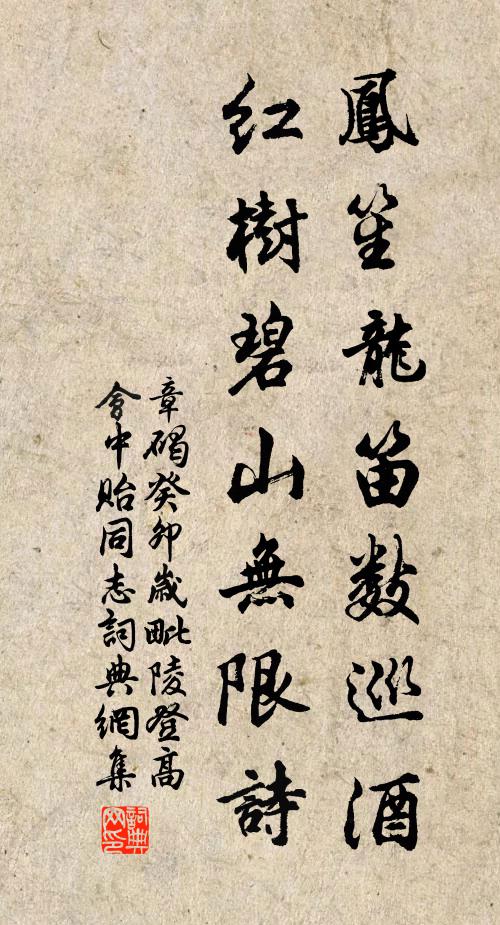 鳳笙龍笛數巡酒
紅樹碧山無限詩
章碣癸卯歲毗陵登高
會中貽同志詞典網集
詞典
网印